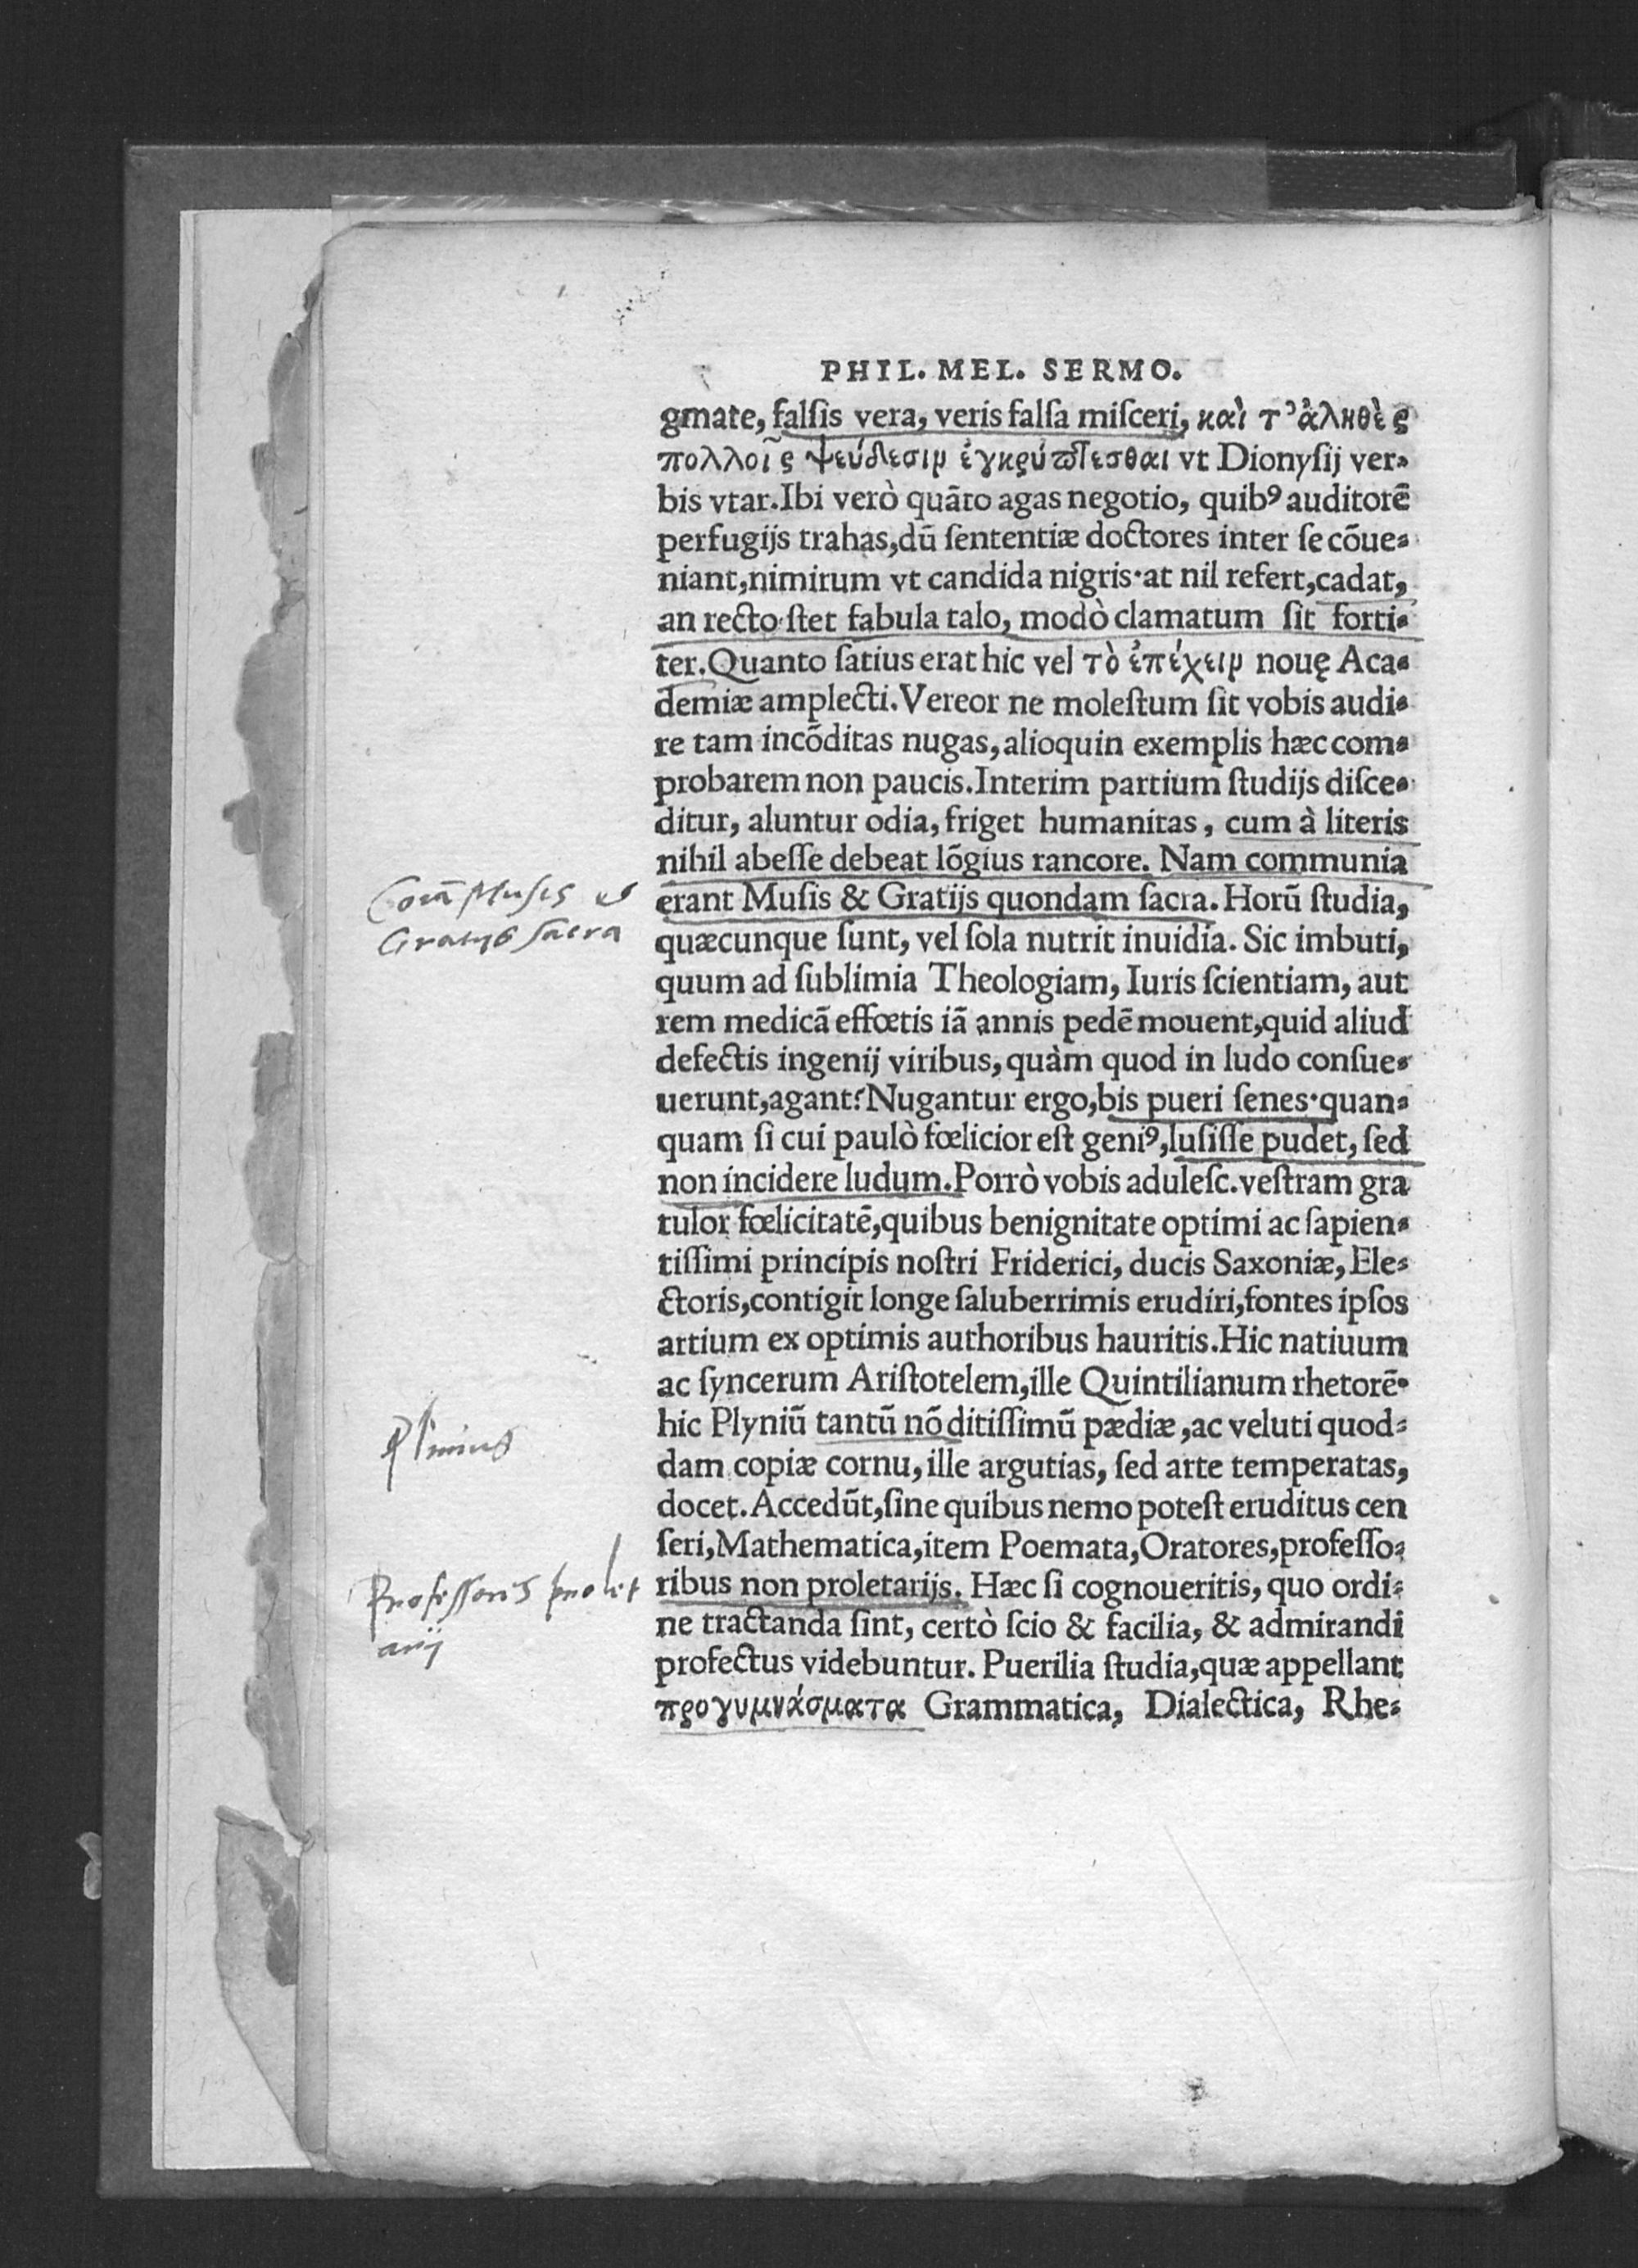 PHIL. MEL. SERMO.
gmate, falsis vera, veris falſa miſceri, καὶ τ' ἀληθὲς
πολλοῖς ψεύδεσιν ἐγκρύπτεσθαι vt Dionyſij ver⸗
bis vtar. Ibi verò quãto agas negotio, quibꝰ auditorẽ
perfugijs trahas, dũ ſententiæ doctores inter ſe cõue⸗
niant, nimirum vt candida nigris· at nil refert, cadat,
an recto ſtet fabula talo, modò clamatum ſit forti⸗
ter. Quanto ſatius erat hic vel τὸ ἐπέχειν nouę Aca⸗
demiæ amplecti. Vereor ne moleſtum ſit vobis audi⸗
re tam incõditas nugas, alioquin exemplis hæc com⸗
probarem non paucis. Interim partium ſtudijs diſce⸗
ditur, aluntur odia, friget humanitas, cum à literis
nihil abeſſe debeat lõgius rancore. Nam communia
erant Muſis & Gratijs quondam ſacra. Horũ ſtudia,
Cõia Musis et
Gratijs sacra
quæcunque ſunt, vel ſola nutrit inuidia. Sic imbuti,
quum ad ſublimia Theologiam, Iuris ſcientiam, aut
rem medicã effœtis iã annis pedẽ mouent, quid aliud
defectis ingenij viribus, quàm quod in ludo conſue⸗
uerunt, agant? Nugantur ergo, bis pueri ſenes· quan⸗
quam ſi cui paulò fœlicior eſt geniꝰ, luſiſſe pudet, ſed
non incidere ludum. Porrò vobis aduleſc. veſtram gra
tulor fœlicitatẽ, quibus benignitate optimi ac ſapien⸗
tiſſimi principis noſtri Friderici, ducis Saxoniæ, Ele⸗
ctoris, contigit longe ſaluberrimis erudiri, fontes ipſos
artium ex optimis authoribus hauritis. Hic natiuum
ac ſyncerum Ariſtotelem, ille Quintilianum rhetorẽ·
hic Plyniũ tantũ nõ ditiſſimũ pædiæ, ac veluti quod⸗
Plinius
dam copiæ cornu, ille argutias, ſed arte temperatas,
docet. Accedũt, ſine quibus nemo poteſt eruditus cen
ſeri, Mathematica, item Poemata, Oratores, profeſſo⸗
ribus non proletarijs. Hæc ſi cognoueritis, quo ordi⸗
Professores prolet
arij
ne tractanda ſint, certò ſcio & facilia, & admirandi
profectus videbuntur. Puerilia ſtudia, quæ appellant
προγυμνάσματα Grammatica, Dialectica, Rhe⸗